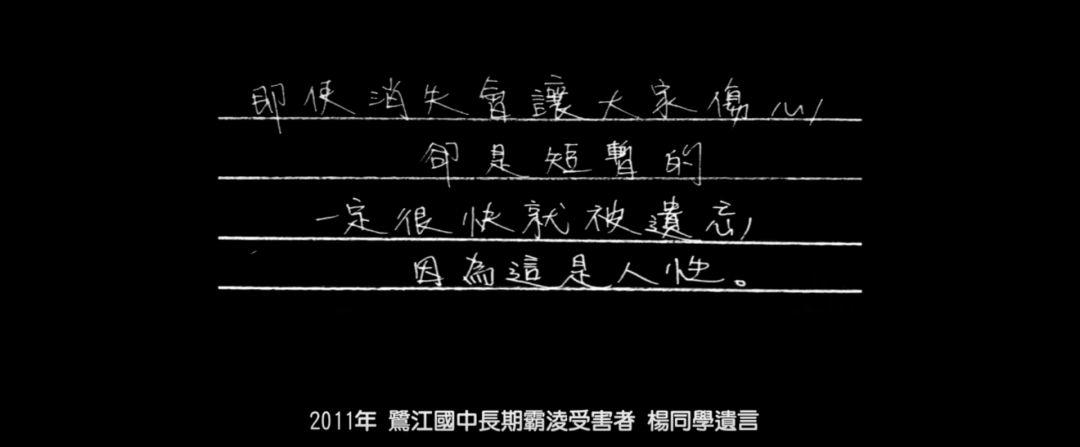 即使消失會讓大家傷心,
卻是短暫的
一定很快就被遺忘,
因為這是人性。
2011年 鷺江國中長期霸淩受害者 楊同學遺言